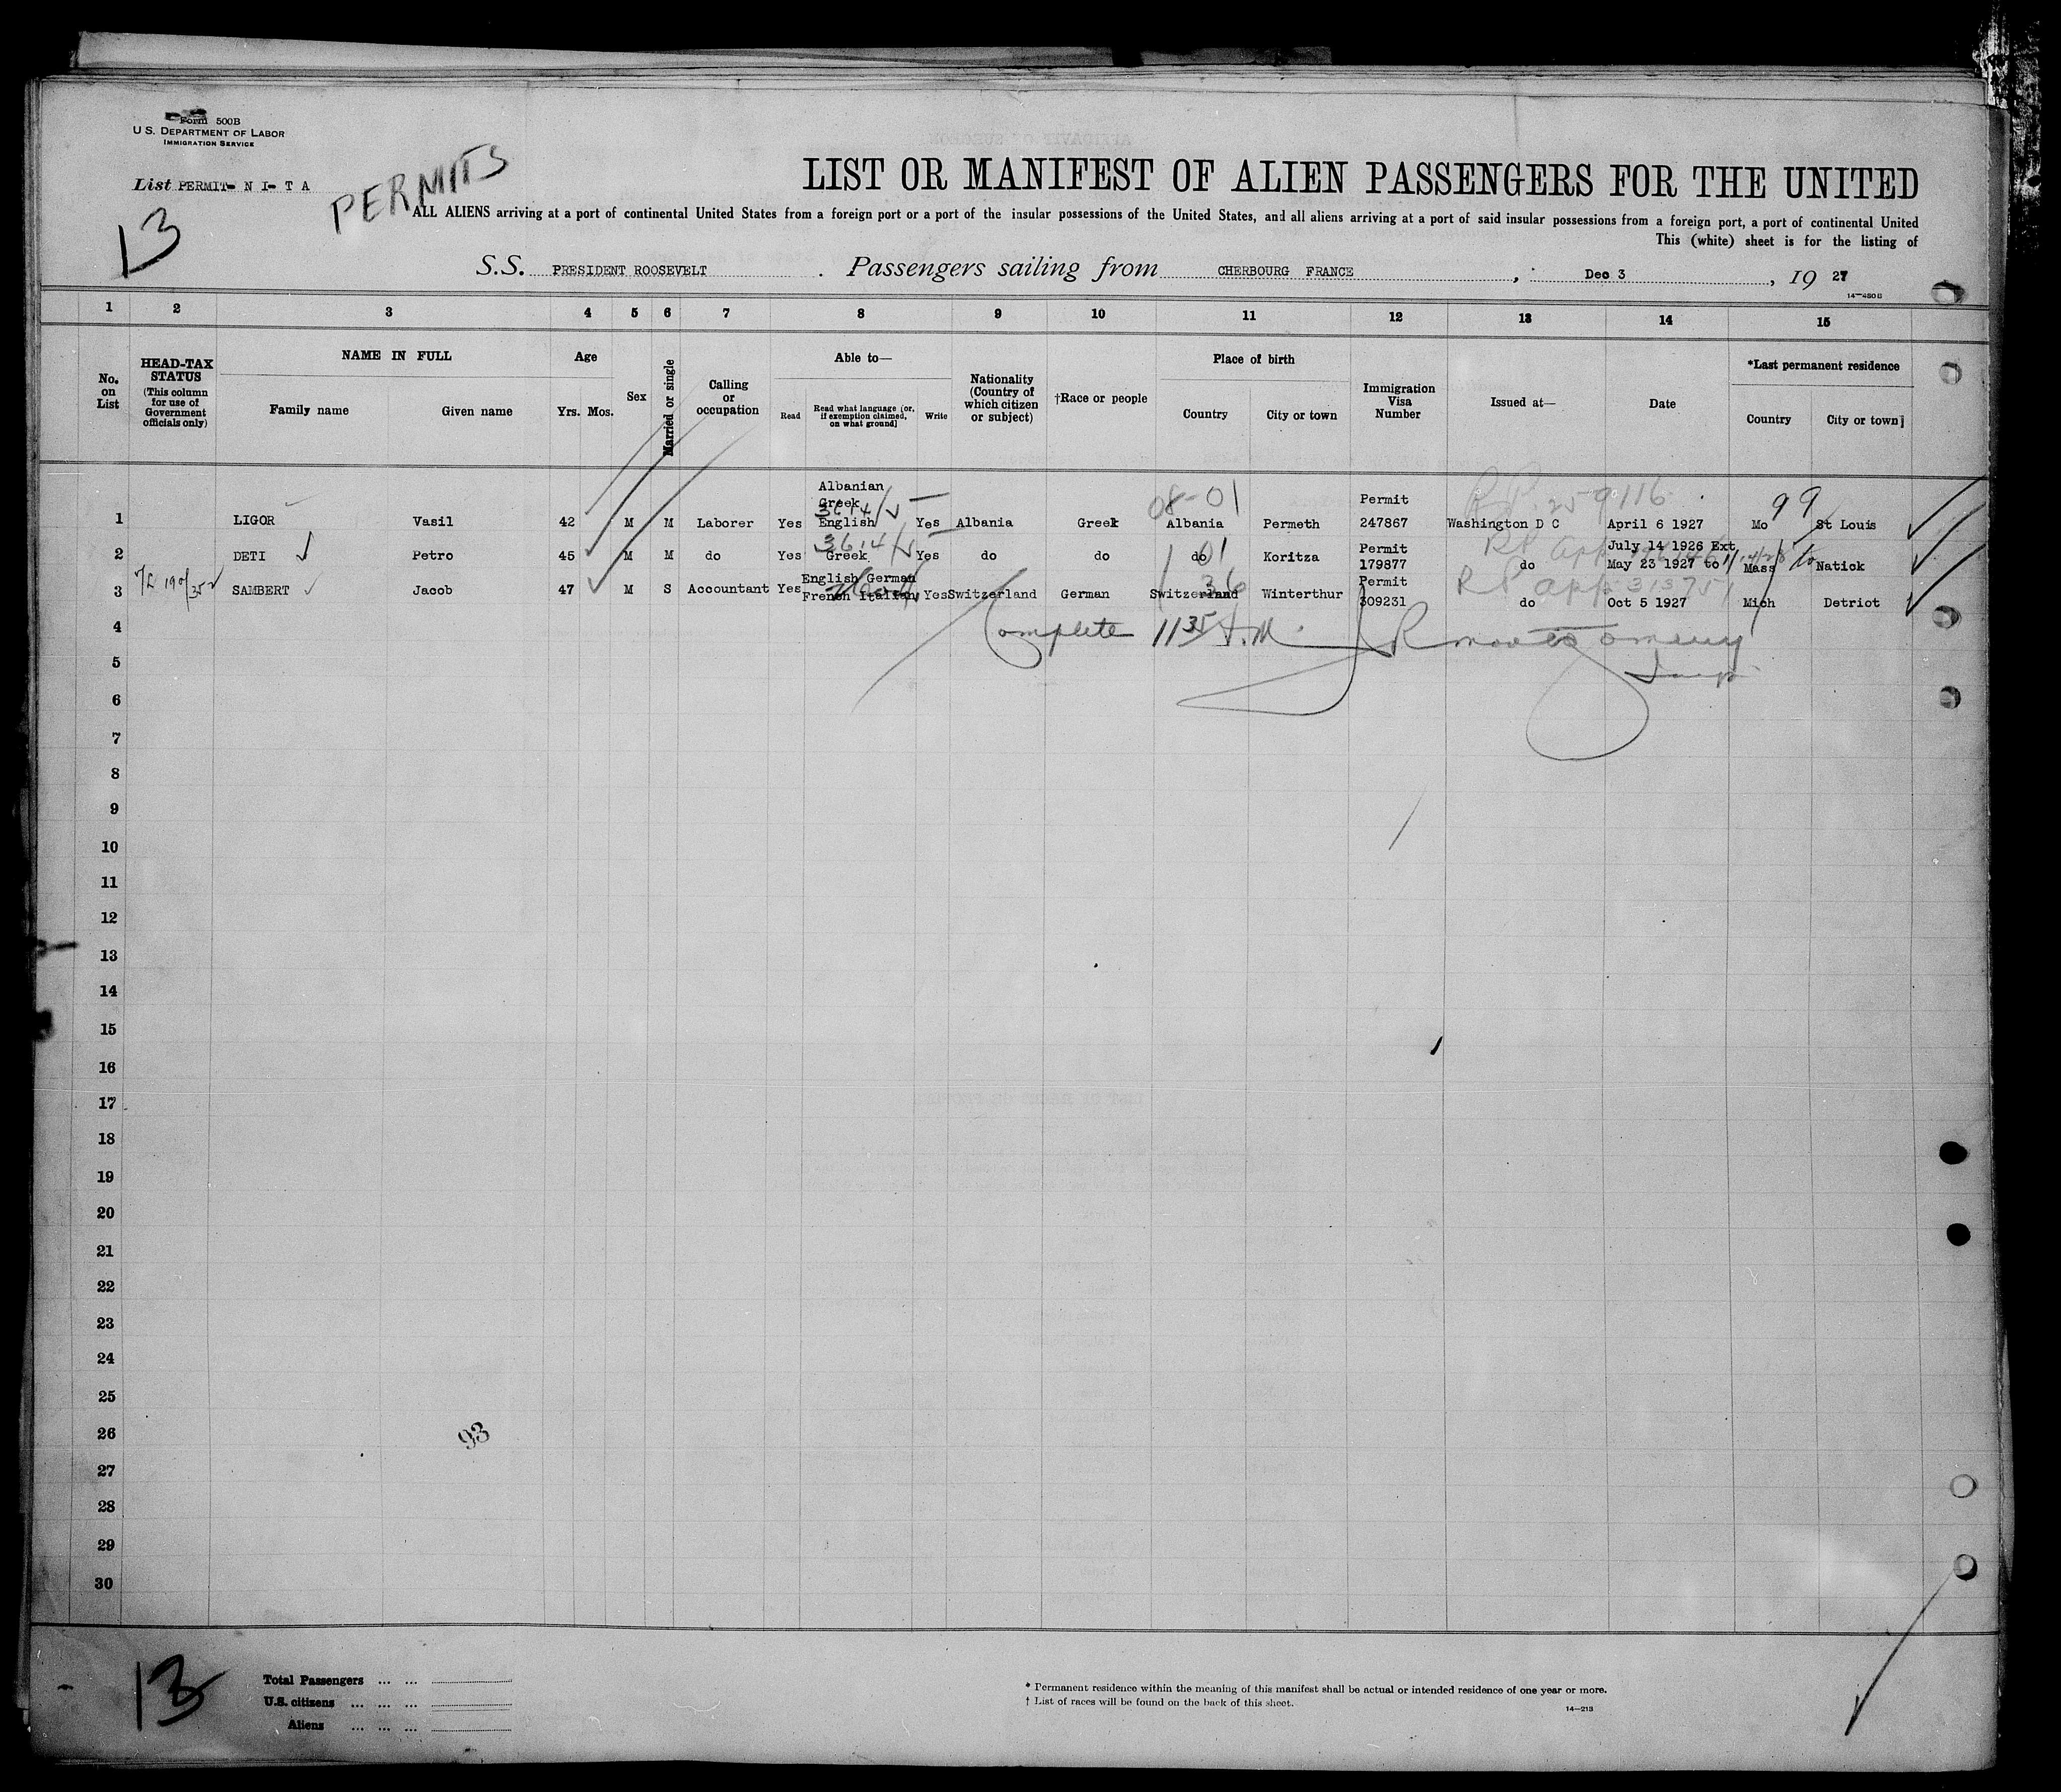 Form 500B
U. S. DEPARTMENT OF LABOR
IMMIGRATION SERVICE
List PERMIT- N I- T A
PERMITS
13
LIST OR MANIFEST OF ALIEN PASSENGERS FOR THE UNITED
ALL ALIENS arriving at a port of continental United States from a foreign port or a port of the insular possessions of the United States, and all aliens arriving at a port of said insular possessions from a foreign port, a port of continental United
This (white) sheet is for the listing of
S.S. PRESIDENT ROOSEVELT . Passengers sailing from CHERBOURG FRANCE , Dec 3 , 19 27
14-480B
1 2 3 4 5 6 7 8 9 10 11 12 13 14 15
No. on List
HEAD-TAX STATUS (This column for use of Government officials only)
NAME IN FULL
Family name Given name
Age
Yrs. Mos.
Sex
Married or single
Calling or occupation
Able to—
Read
Read what language [or, if exemption claimed, on what ground]
Write
Nationality (Country of which citizen or subject)
†Race or people
Place of birth
Country City or town
Immigration Visa Number
Issued at—
Date
*Last permanent residence
Country City or town]
1 LIGOR Vasil 42 M M Laborer Yes Albanian Greek English Yes Albania Greek Albania Permeth Permit 247867 Washington D C April 6 1927 Mo St Louis
08-01
99
3614/
2 DETI Petro 45 M M do Yes Greek Yes do do do Koritza Permit 179877 do July 14 1926 Ext May 23 1927 to Mass Natick
3614/
01
3 SAMBERT Jacob 47 M S Accountant Yes English German French Italian Yes Switzerland German Switzerland Winterthur Permit 309231 do Oct 5 1927 Mich Detriot
36
RP app 313751
4
Complete 11 35 A.M.
5
6
7
8
9
10
11
12
13
14
15
16
17
18
19
20
21
22
23
24
25
26
93
27
28
29
30
13
Total Passengers ... ...
U.S. citizens ... ... ...
Aliens ... ... ...
* Permanent residence within the meaning of this manifest shall be actual or intended residence of one year or more.
† List of races will be found on the back of this sheet.
14-213